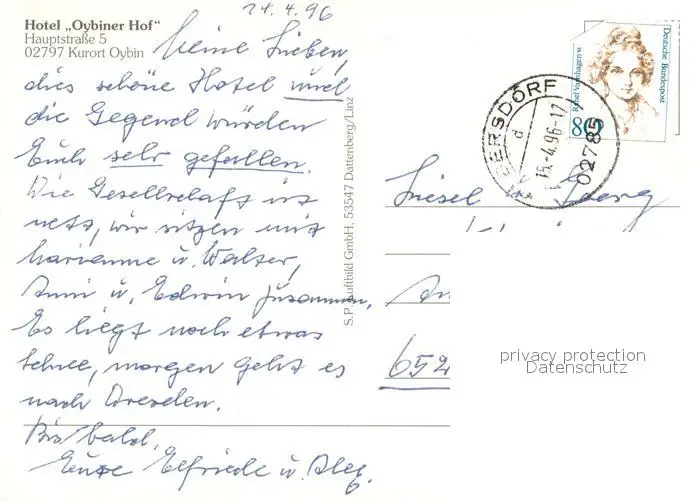 14.4.96
Hotel „Oybiner Hof"
Hauptstraße 5
02797 Kurort Oybin
Meine Lieben,
dies schöne Hotel und
die Gegend würden
Euch sehr gefallen.
Die Gesellschaft ist
nett, wir sitzen mit
Marianne u. Walter,
Anni u. Edwin zusammen,
Es liegt noch etwas
Schnee, morgen geht es
nach Dresden.
Bis bald,
Eure Elfriede u. Alex.
S.P. Luftbild GmbH, 53547 Dattenberg/Linz
Deutsche Bundespost
Rahel Varnhagen v.
80
ERSDORF
d
15.-4.96-17
02785
Liesel Georg
An
652
privacy protection
Datenschutz